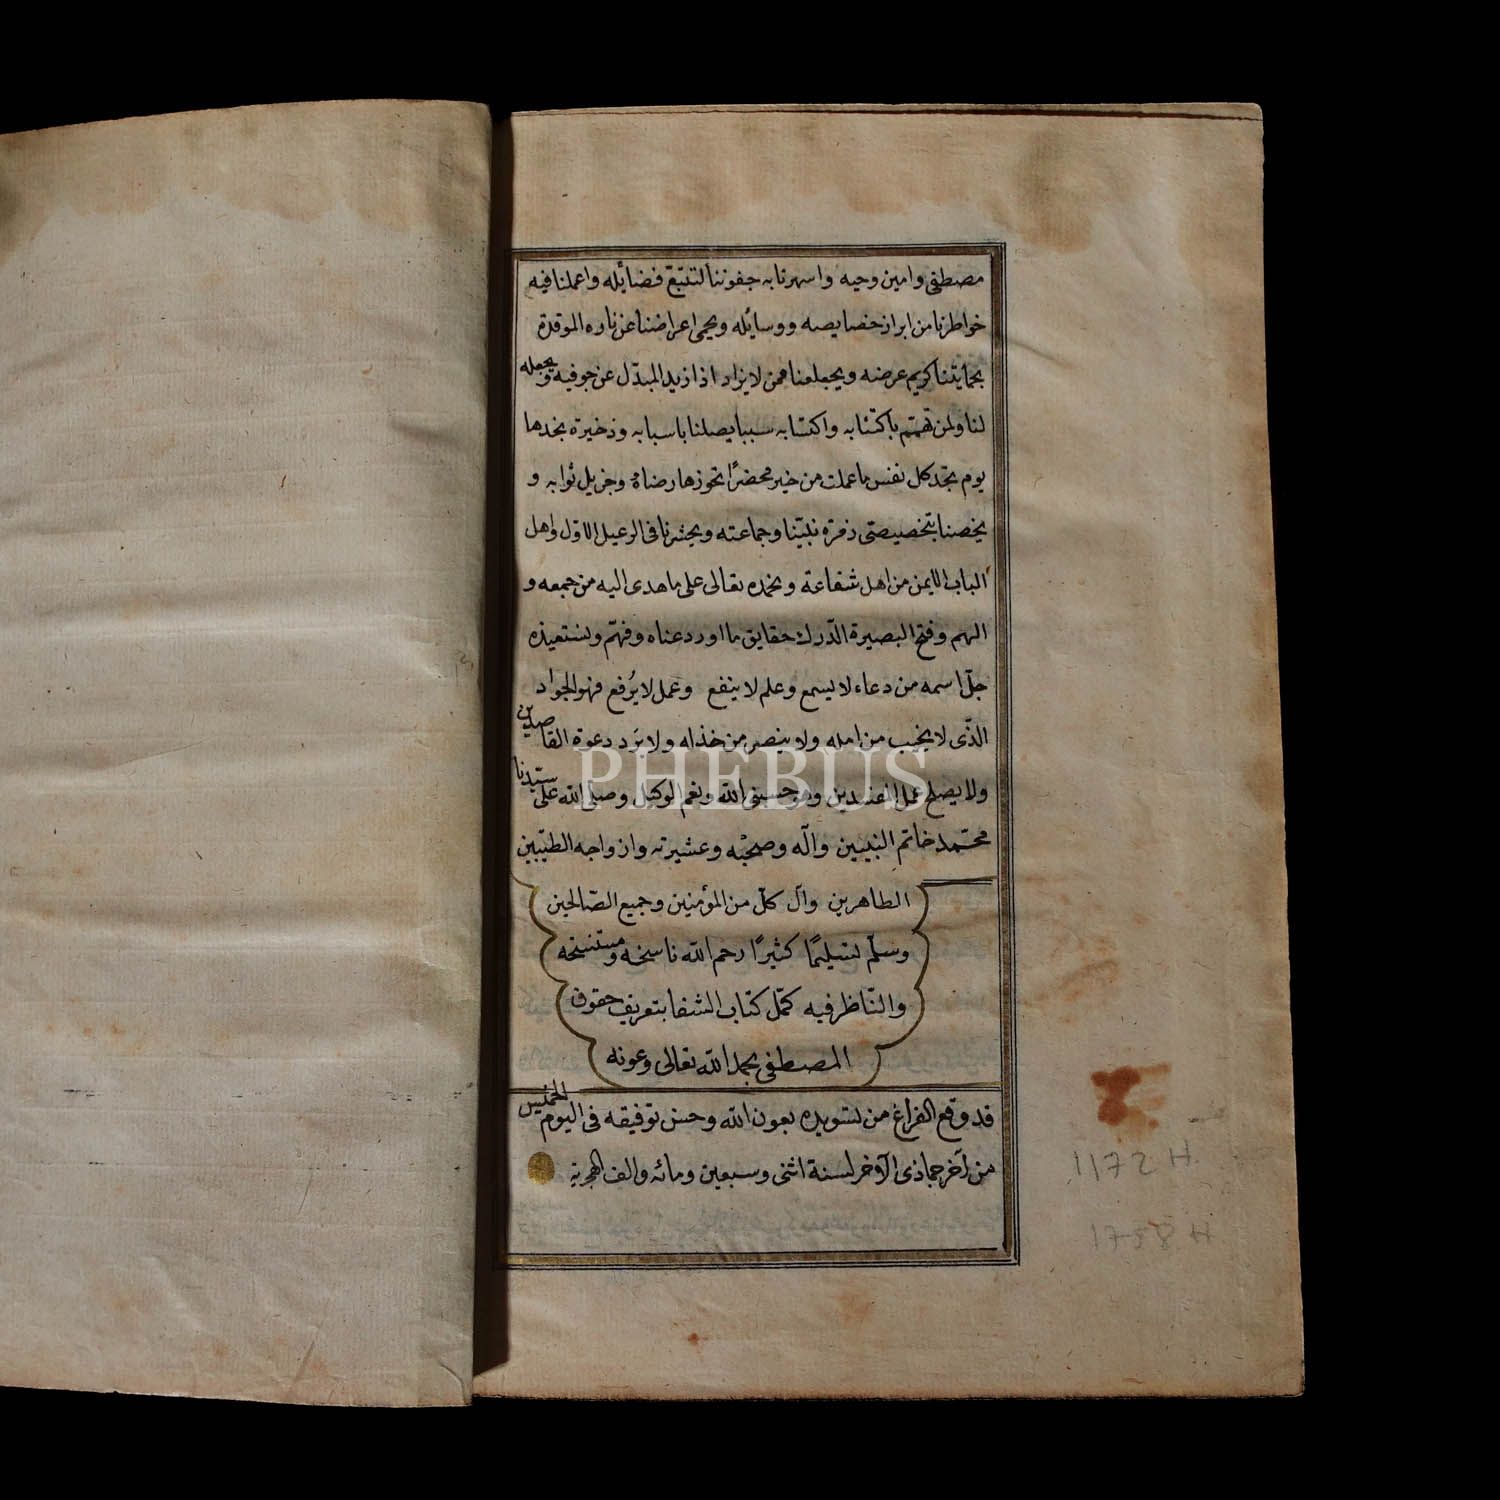 مصطفى وامين وحيه واسهرنا به جفوننا لتتبع فضائله واعملنا فيه
خواطرنا من ابراز خصايصه ووسايله ويحمى اعراضنا عن ناره الموقدة
بحمايتنا كريم عرضه ويجعلنا ممن لا يزاد اذا ذيد المبدّل عن حوضه ويجعله
لنا ولمن تهمّم باكتتابه واكتسابه سببا يصلنا باسبابه وذخيرة نجدها
يوم تجد كل نفس ما عملت من خير محضرًا نحوز بها رضاه وجزيل ثوابه و
يخصنا بخصيصى زمرة نبيّنا وجماعته ويحشرنا فى الرعيل الاوّل واهل
الباب الايمن من اهل شفاعته ونحمده تعالى على ما هدى اليه من جمعه و
الهم وفتح البصيرة لدرك حقايق ما اوردعناه وفهّم ونستعيذه
جلّ اسمه من دعاء لا يسمع وعلم لا ينفع وعمل لا يُرفع فهو الجواد
الذّى لا يخيب من امله ولا ينصر من خذله ولا يرد دعوة القاصدين
ولا يصلح عمل المفسدين وهو حسبى الله ونعم الوكيل وصلى الله على سيّدنا
محمّد خاتم النبيين وآله وصحبه وعشيرته وازواجه الطيّبين
الطاهرين وآل كلّ من المؤمنين وجميع الصّالحين
وسلّم تسليمًا كثيرًا رحم الله ناسخه ومستنسخه
والنّاظر فيه كمّل كتاب الشفا بتعريف حقوق
المصطفى بحمد الله تعالى وعونه
قد وقع الفراغ من تسويده بعون الله وحسن توفيقه فى اليوم الخميس
من آخر جماذى الآخر لسنة اثنى وسبعين ومائه والف الهجرية
1172 H.
1758 H
PHEBUS